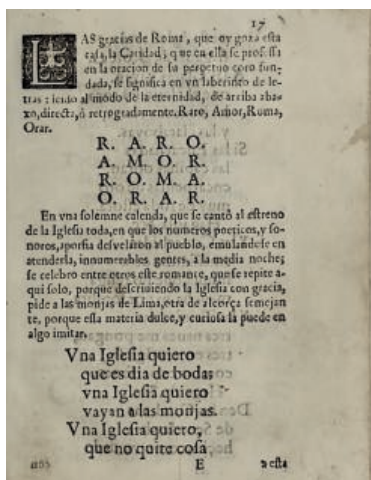 17
LAS gracias de Roma, que oy goza esta
casa, la Caridad; que en ella se professa
en la oracion de su perpetuo coro fun-
dada, se significa en vn laberinto de le-
tras: leido al modo de la eternidad, de arriba aba-
xo, directa, ò retrogradamente. Raro, Amor, Roma,
Orar.
R. A. R. O.
A. M. O. R.
R. O. M. A.
O. R. A. R.
En vna solemne calenda, que se cantò al estreno
de la Iglesia toda, en que los numeros poeticos, y so-
noros, aporfia desvelaron al pueblo, emulandose en
atenderla, innumerables gentes, a la media noche;
se celebro entre otros este romance, que se repite a-
qui solo, porque descriuiendo la Iglesia con gracia,
pide a las monjas de Lima, otra de alcorça semejan
te, porque esta materia dulce, y curiosa la puede en
algo imitar.
Vna Iglesia quiero
que es dia de boda;
vna Iglesia quiero
vayan a las monjas.
Vna Iglesia quiero,
que no quite cosa
E
a esta